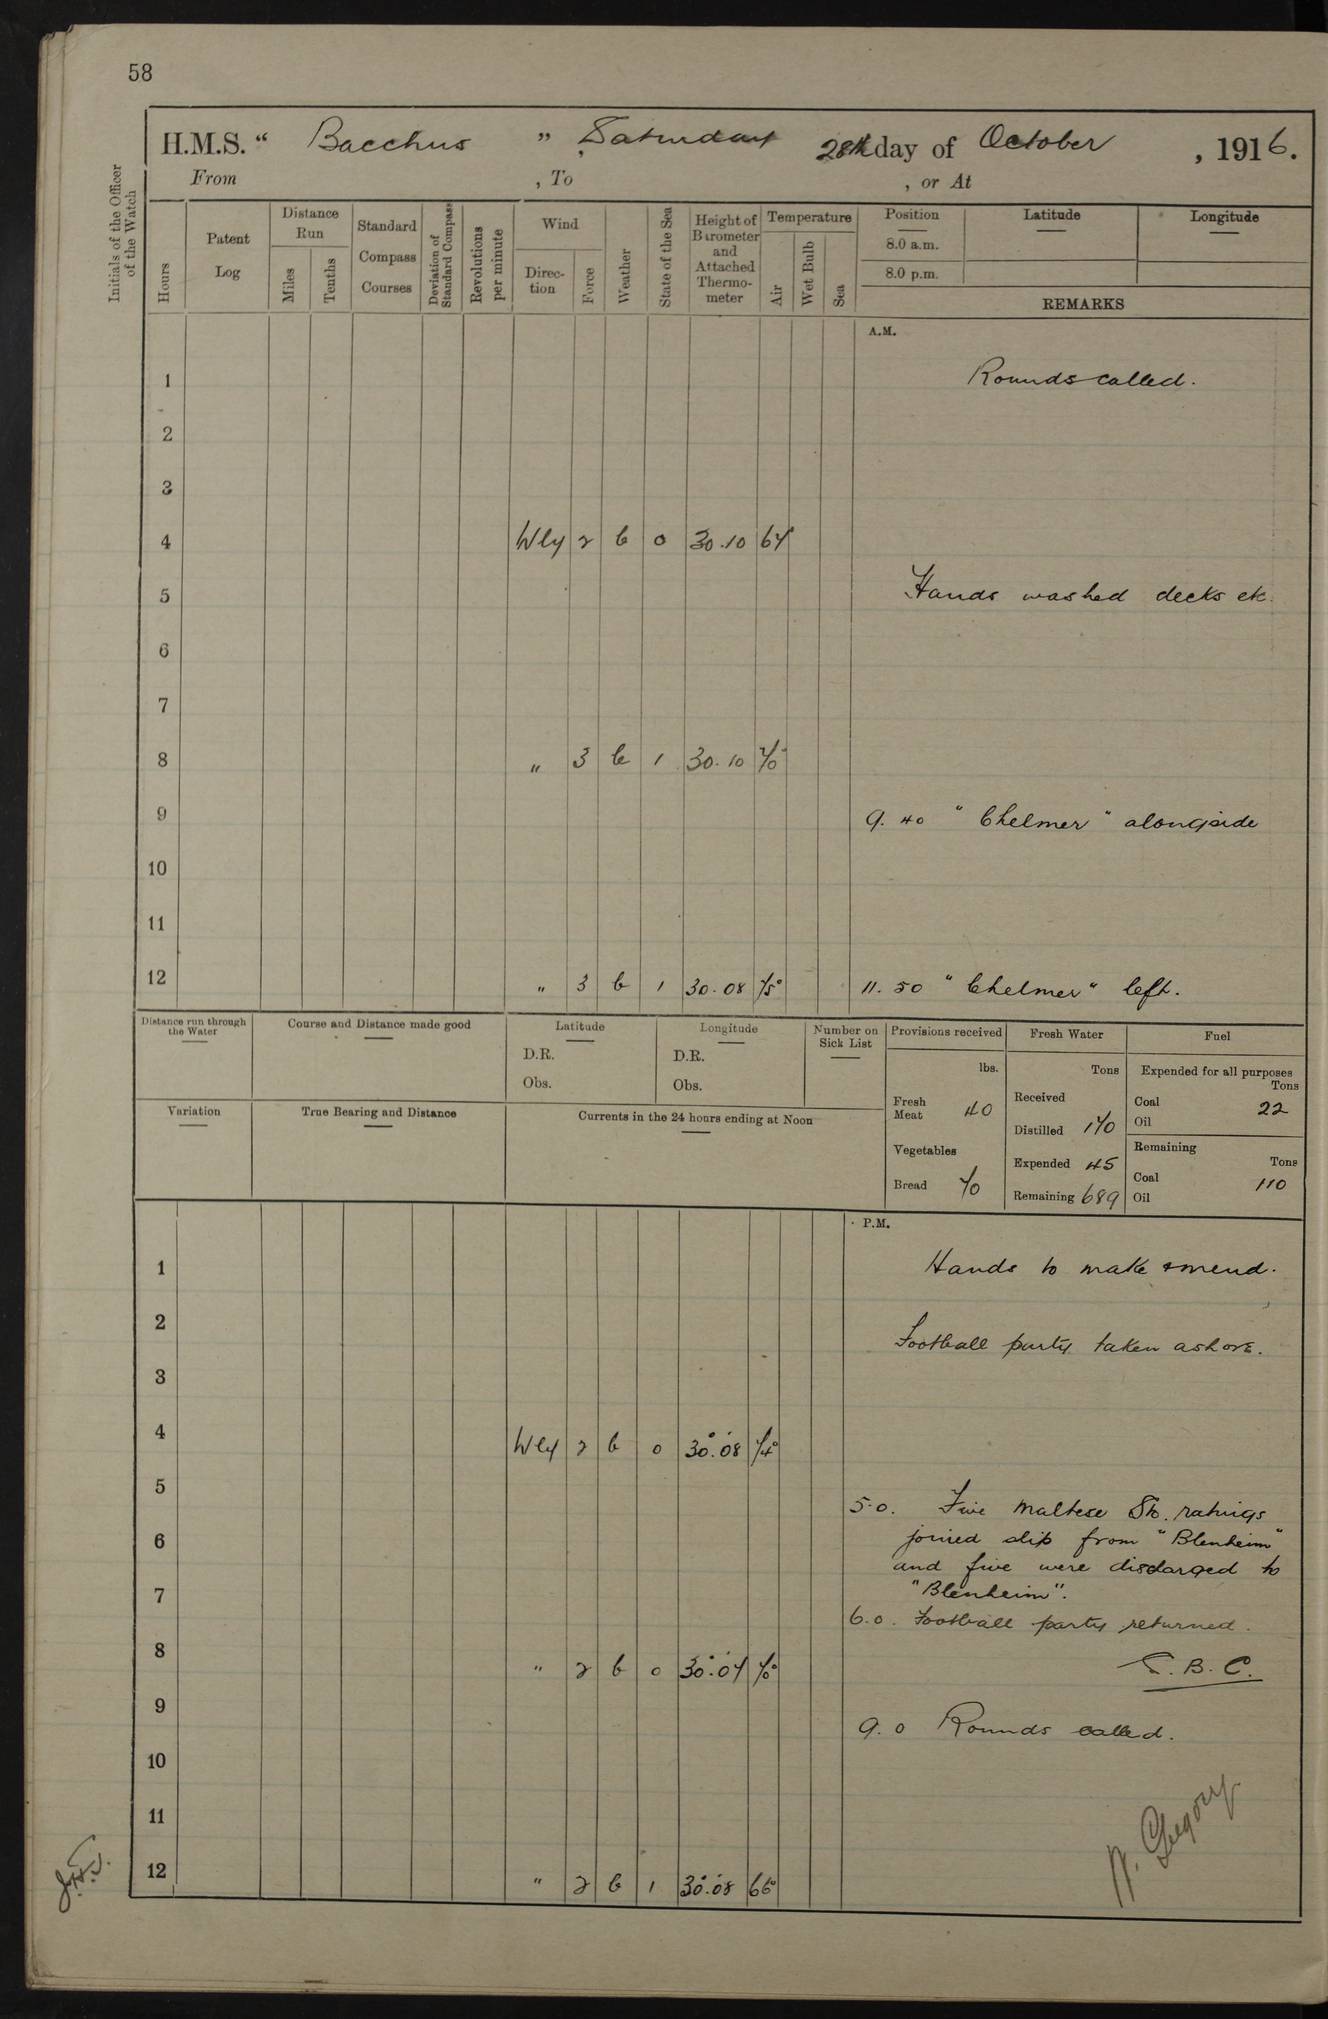 58
H.M.S. " Bacchus " Saturday 28th day of October, 1916.
From , To , or At
Initials of the Officer of the Watch
Hours
Patent Log
Distance Run
Miles
Tenths
Standard Compass Courses
Deviation of Standard Compass
Revolutions per minute
Wind
Direction
Force
Weather
State of the Sea
Height of Barometer and Attached Thermometer
Temperature
Air
Wet Bulb
Sea
Position Latitude Longitude
8.0 a.m.
8.0 p.m.
REMARKS
A.M.
1 Rounds called.
2
3
4 Wly 2 b 0 30.10 67
5 Hands washed decks etc.
6
7
8 " 3 b 1 30.10 70
9 9.40 "Chelmer" alongside
10
11
12 " 3 b 1 30.08 75° 11.50 "Chelmer" left.
Distance run through the Water
Course and Distance made good
Latitude
D.R.
Obs.
Longitude
D.R.
Obs.
Number on Sick List
Provisions received
lbs.
Fresh Meat 40
Vegetables
Bread 70
Fresh Water
Tons
Received
Distilled 170
Expended 45
Remaining 689
Fuel
Expended for all purposes
Tons
Coal 22
Oil
Remaining
Tons
Coal 110
Oil
Variation
True Bearing and Distance
Currents in the 24 hours ending at Noon
P.M.
1 Hands to make & mend.
2 Football party taken ashore.
3
4 Wly 2 b 0 30.08 74°
5 5.0. Five Maltese Sto. ratings
6 joined ship from "Blenheim"
and five were discharged to
7 "Blenheim".
6.0. Football party returned.
8 " 2 b 0 30.07 70° E.B.C.
9 9.0 Rounds called.
10
11
12 " 2 b 1 30.08 66°
W. Gregory